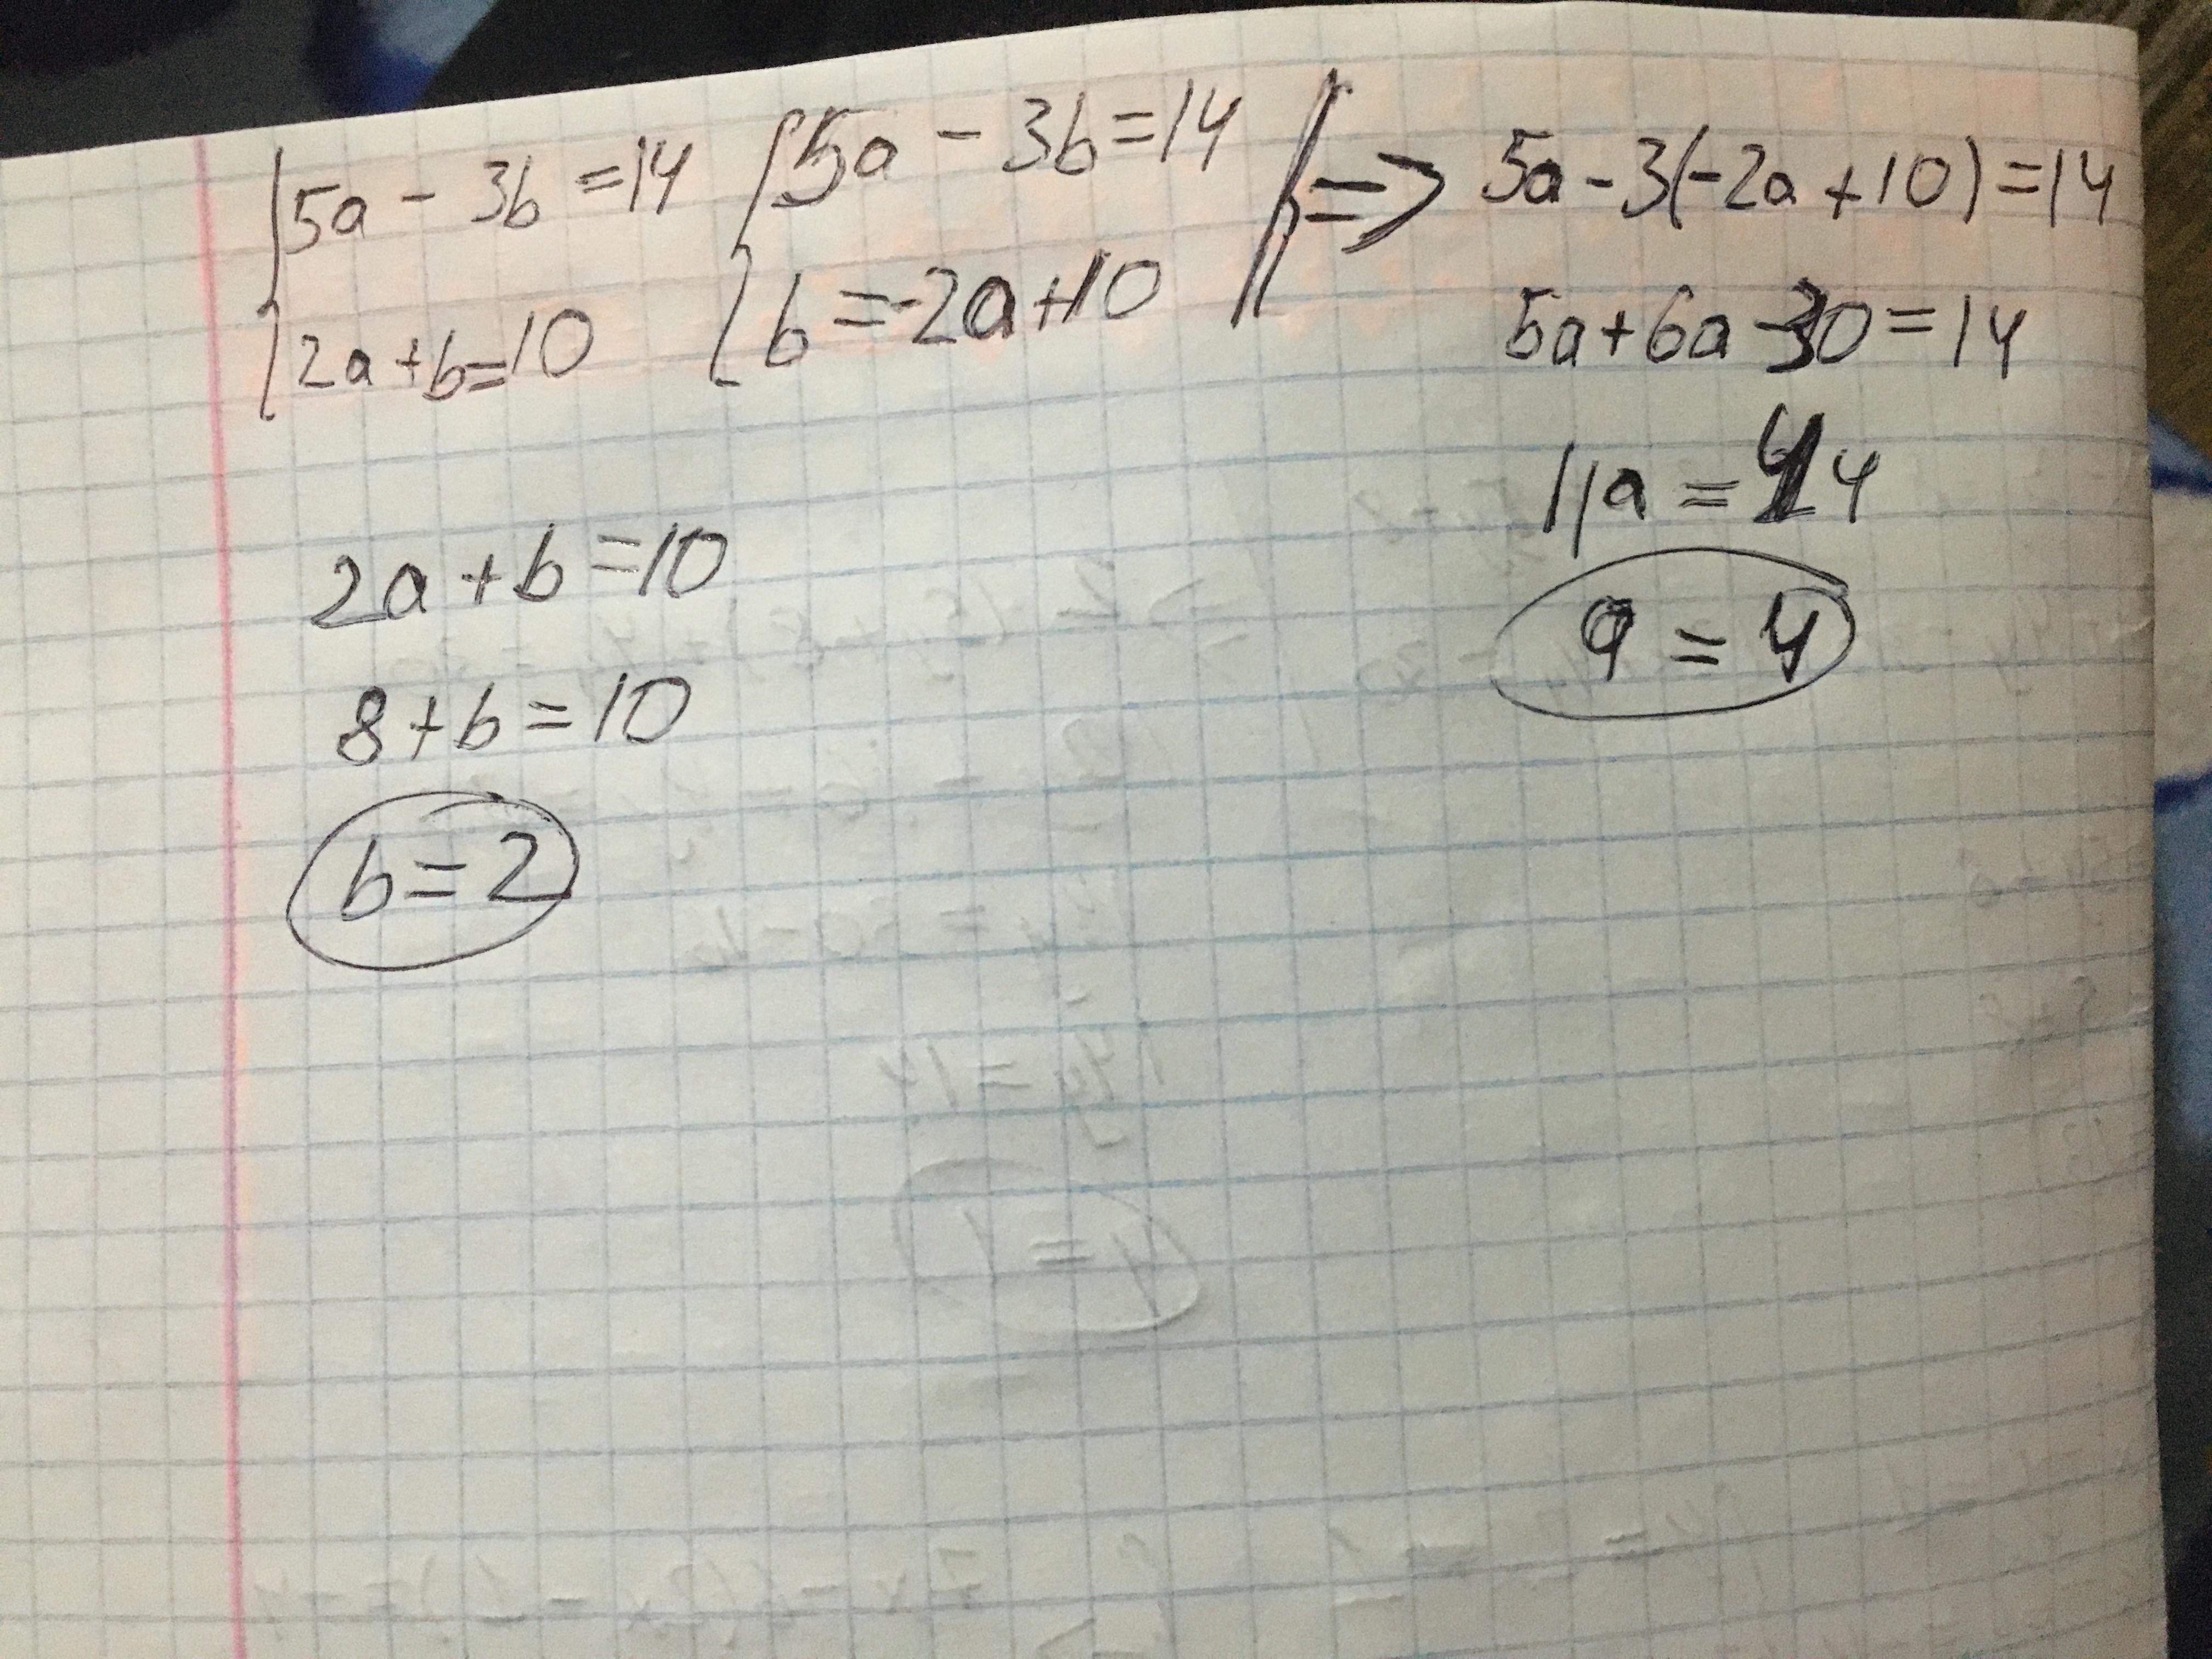 5a - 3b = 14
2a + b = 10
5a - 3b = 14
b = -2a + 10
=> 5a - 3(-2a + 10) = 14
5a + 6a - 30 = 14
11a = 44
a = 4
2a + b = 10
8 + b = 10
b = 2